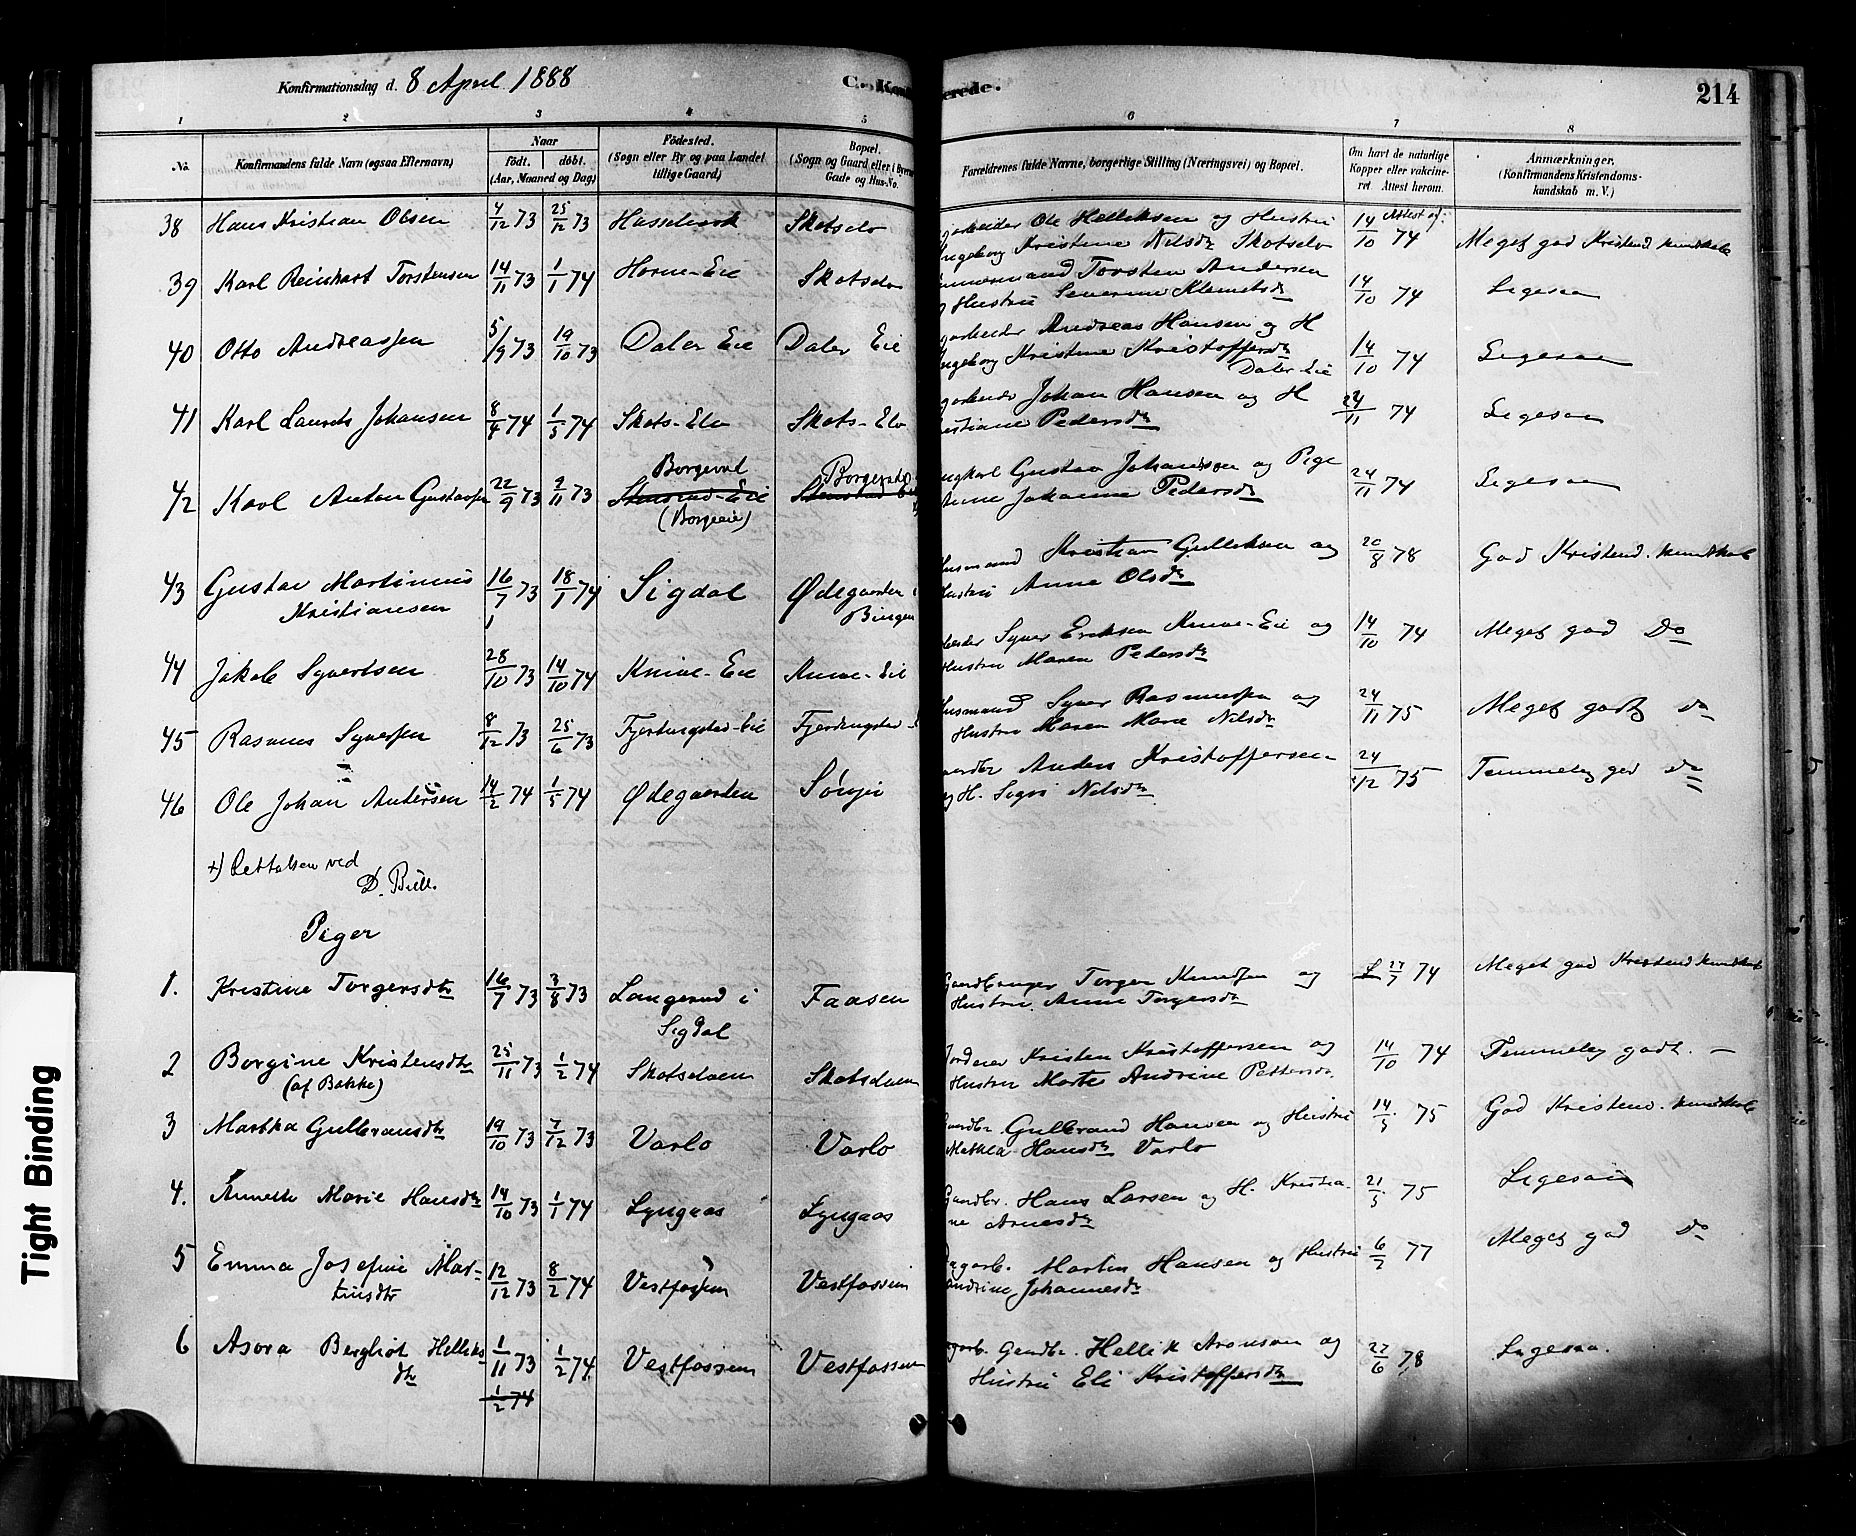 Konfirmationsdag d. 8 April 1888
C. Konf
erede.
214
1 2 3 4 5 6 7 8
No. Konfirmandens fulde Navn (ogsaa Efternavn) Naar født. døbt. (Aar, Maaned og Dag) Fødested. (Sogn eller By og paa Landet tillige Gaard) Bopæl. (Sogn og Gaard eller i Byerne Gade og Hus-No. Forældrenes fulde Navne, borgerlige Stilling (Næringsvei) og Bopæl. Om havt de naturlige Kopper eller vaccineret. Attest herom. Anmærkninger. (Konfirmandens Kristendomskundskab m. V.)
38 Hans Kristian Olsen 4/12 73 25/12 73 Hasselverk Skotselv Ole Helliksen og Hustru 14/10 74 Attest af: Meget god Kristend. kundskab
Ingeborg Kristine Nilsdr Skotselv
39 Karl Reinhart Torstensen 14/11 73 1/1 74 Horne-Eie Skotselv Torsten Andersen 14/10 74 Ligesaa
og Hustru Severine Klemetsdr
40 Otto Andreassen 5/9 73 19/10 73 Daler Eie Daler Eie Andreas Hansen og H 14/10 74 Ligesaa
Ingeborg Kristine Kristoffersdr
Daler Eie
41 Karl Laurits Johansen 8/4 74 1/5 74 Skots-Elv Skots-Elv Johan Hansen og H 24/11 74 Ligesaa
Pedersdr
42 Karl Anton Gustavsen 22/9 73 2/11 73 Stensrud-Eie Gustav Johansen og Pige 24/11 74 Ligesaa
(Borgeeie) Anne Johanne Pedersdr
43 Gustav Martinius 16/7 73 18/1 74 Sigdal Ødegaarden i Husmand Kristian Gulliksen og 20/8 78 God Kristend. kundskab
Kristiansen Bingen Hustru Anne Olsdr
44 Jakob Syvertsen 28/10 73 14/10 74 Knive-Eie Knive-Eie Syver Eriksen Knive-Eie og 14/10 74 Meget god Do
Hustru Maren Pedersdr
45 Rasmus Syversen 8/12 73 25/6 73 Fjerdingstad-Eie Fjerdingstad- Husmand Syver Rasmussen og 24/11 75 Meget godt Do
Hustru Maren Marie Nilsdr
46 Ole Johan Andersen 14/2 74 1/5 74 Ødegaarden Anders Kristoffersen 24/12 75 Temmelig god Do
og H. Sigri Nilsdr
+) Rettelsen ved
D. Bull.
Piger
1. Kristine Torgersdtr 16/7 73 3/8 73 Langerud i Faasen Gaardbruger Torger Knudsen og 27/7 74 Meget god Kristend kundskab
Sigdal Hustru Anne Torgersdr
2 Borgine Kristensdtr 25/11 73 1/2 74 Skotselven Skotselven Kristen Kristoffersen og 14/10 74 Temmelig godt. —
(af Bakke) Hustru Marte Andrine Pettersdr
3 Martha Gulbransdtr 19/10 73 7/12 73 Varlo Varlo Gaardbr. Gulbrand Hansen og Hustru 14/5 75 God Kristend. kundskab
Mathea Hansdr Varlo
4. Annette Marie Hansdtr 14/10 73 1/1 74 Lyngaas Lyngaas Gaardbr. Hans Larsen og H. Kristia- 21/5 75 Ligesaa
ne Arnesdr
5 Emma Josefine Mar- 12/12 73 8/2 74 Vestfossen Vestfossen Dagarb. Martin Hansen og Hustru 6/2 77 Meget god Do
tinsdtr Johannesdr
6 Asora Bergliot Helliks 1/11 73 1/2 74 Vestfossen Vestfossen Gaardbr. Hellik Aronson og 27/6 78 Ligesaa.
dtr Hustru Eli Kristoffersdr
1/2 74
Tight Binding